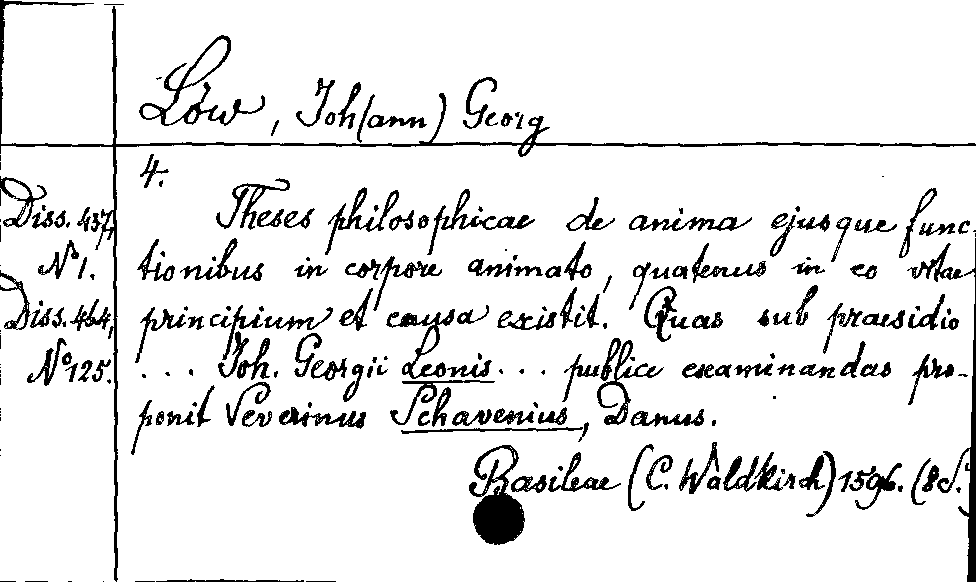 Löw, Joh(ann) Georg
4.
Diss. 437,
N° 1.
Diss. 464,
N° 125.
Theses philosophicae de anima ejusque func-
tionibus in corpore animato, quatenus in eo vitae
principium et causa existit. Quas sub praesidio
... Joh. Georgii Leonis ... publice examinandas pro-
ponit Severinus Schavenius, Danus.
Basileae (C. Waldkirch) 1596. (8 S.)